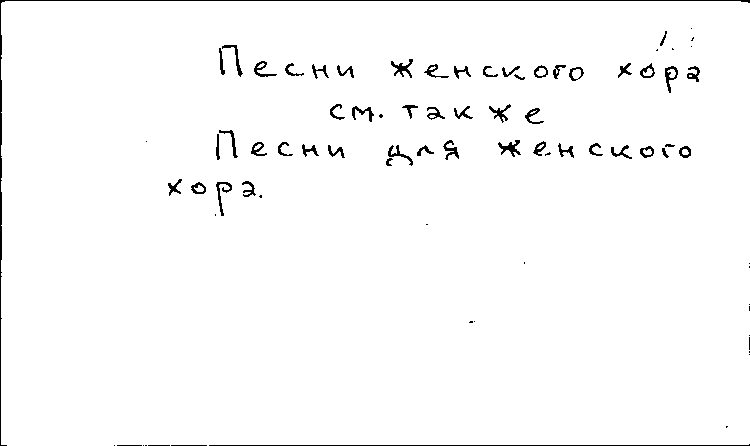 Песни женского хора
см. также
Песни для женского
хора.